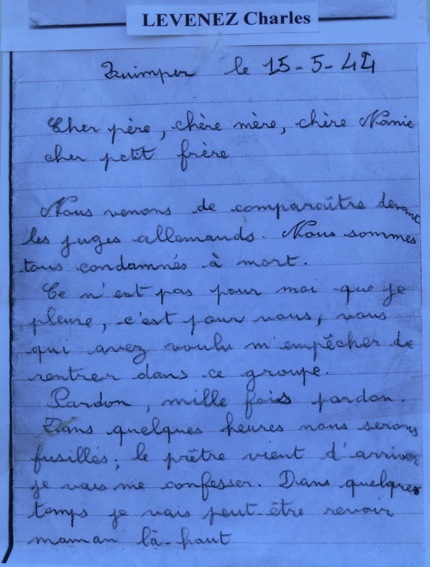 LEVENEZ Charles
Quimper le 15-5-44
Cher père, chère mère, chère Mamie
cher petit frère
Nous venons de comparaître devant
les juges allemands. Nous sommes
tous condamnés à mort.
Ce n'est pas pour moi que je
pleure, c'est pour vous, vous
qui avez voulu m'empêcher de
rentrer dans ce groupe.
Pardon, mille fois pardon.
Dans quelques heures nous serons
fusillés; le prêtre vient d'arriver
je vais me confesser. Dans quelques
temps je vais peut-être revoir
maman là-haut